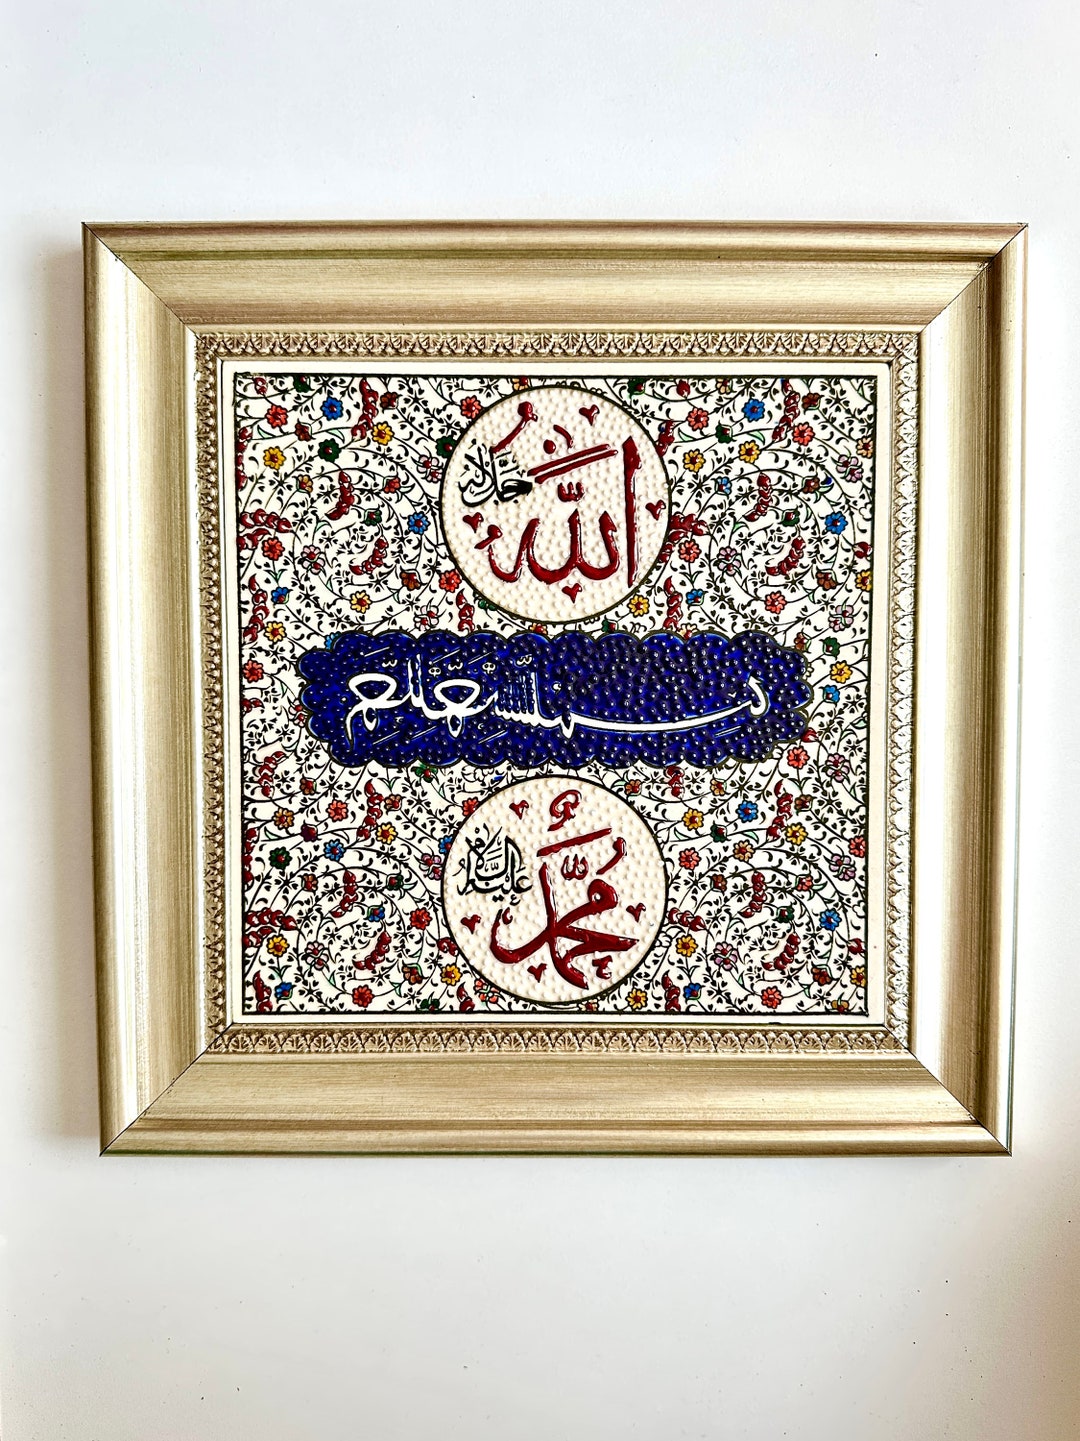 الله جل جلاله
بسم الله الرحمن الرحيم
محمد عليه السلام